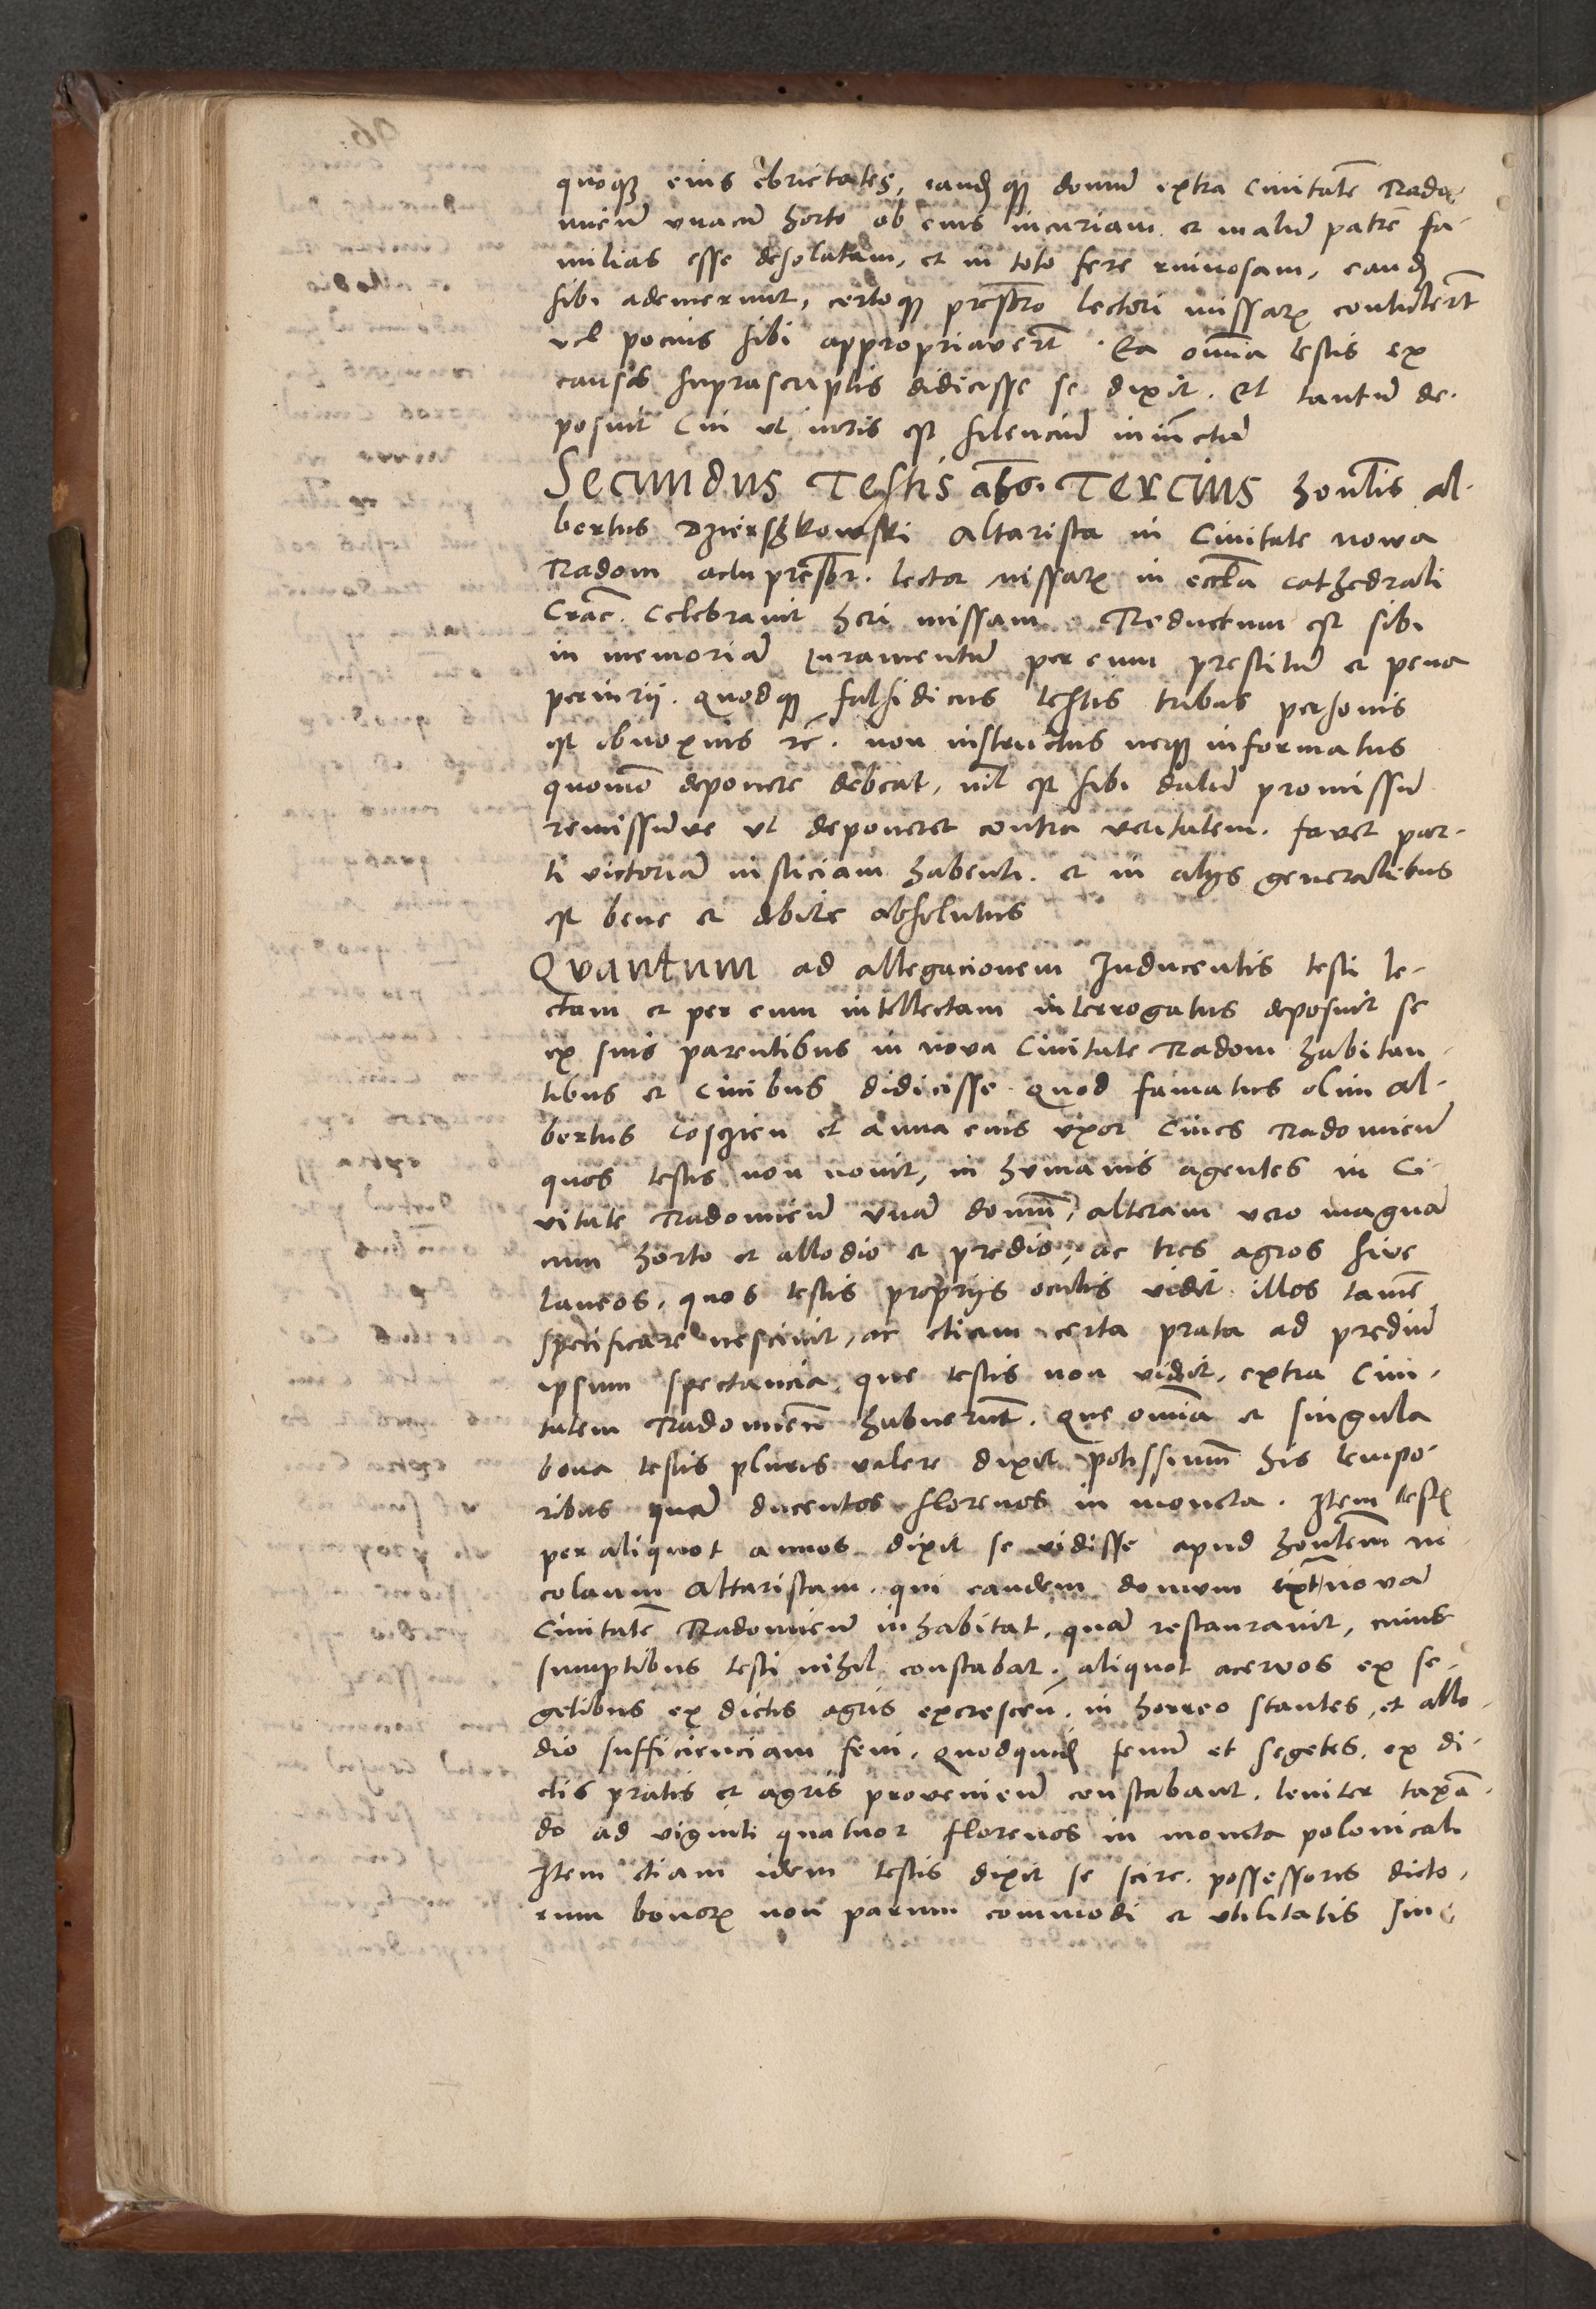 quoq₃ eius ebrietates, eandq₃ domu extra Ciuitate Rado-
mien vnacu horto ob eius incuriam et malu patre fa-
milias esse desolatam, et in toto fere ruinosam, eand
sibi ademerunt, certoq₃ presbro lectori missaꝝ contulert
vel pocius sibi appropriavert. Ea omia testis ex
causis suprascriptis didicisse se dixit. Et tantu de-
posuit Cui vt iuris est silenciu iniuctu
Secundus Testis Tercius honlis Al-
bertus Dzierszkowski Altarista in Civitate nowa
Radom actu presbr. lector missaꝝ in eccla cathedrali
Crac. Celebravit heri missam. Reductum est sibi
in memoria Iuramentu per eum prestitu et pena
periurii. Quodq₃ falsidicus testis tribus personis
est obnoxius rc. non instructus neq₃ informatus
quomo deponere debeat, nil est sibi datu promissu
remissuve vt deponeret contra veritatem. favet par-
ti victoria iusticiam habenti. et in alijs generalibus
est bene et abile absolutus
Quantum ad allegacionem Inducentis testi le-
ctam et per eum intellectam interrogatus deposuit se
ex suis parentibus in nova Civitate Radom habitan-
tibus et Civibus didicisse quod famatus olim Al-
bertus Coszien et Anna eius vxor Cives Radomien
quos testis non novit, in humanis agentes in Ci-
vitate Radomien vna domu, alteram vero magna
cum horto et allodio et predio, ac tres agros sive
laneos, quos testis proprijs oculis vidit illos tame
specificare nescivit, ac etiam certa prata ad prediu
ipsum spectancia que testis non vidit, extra Civi-
tatem Radomien habuerut. Que omia et singula
bona testis pluris valere dixit potissimu his tempo-
ribus qua ducentos florenos in moneta. Item test
per aliquot annos dixit se vidisse apud honlem ni-
colaum Altaristam. qui eandem domum nova
Civitate Radomien inhabitat, qua restauravit, cuius
sumptibus testi nihil constabat, aliquot acervos ex se-
getibus ex dictis agris excrescen. in horreo stantes, et allo-
dio sufficienciam feni. Quodquid fenu et segetes, ex di-
ctis pratis et agris provenien constabant. leviter taxa-
do ad viginti quatuor florenos in moneta polonicali
Item etiam idem testis dixit se scire. possessores dicto-
rum bonoꝝ non parum commodi et vtilitatis